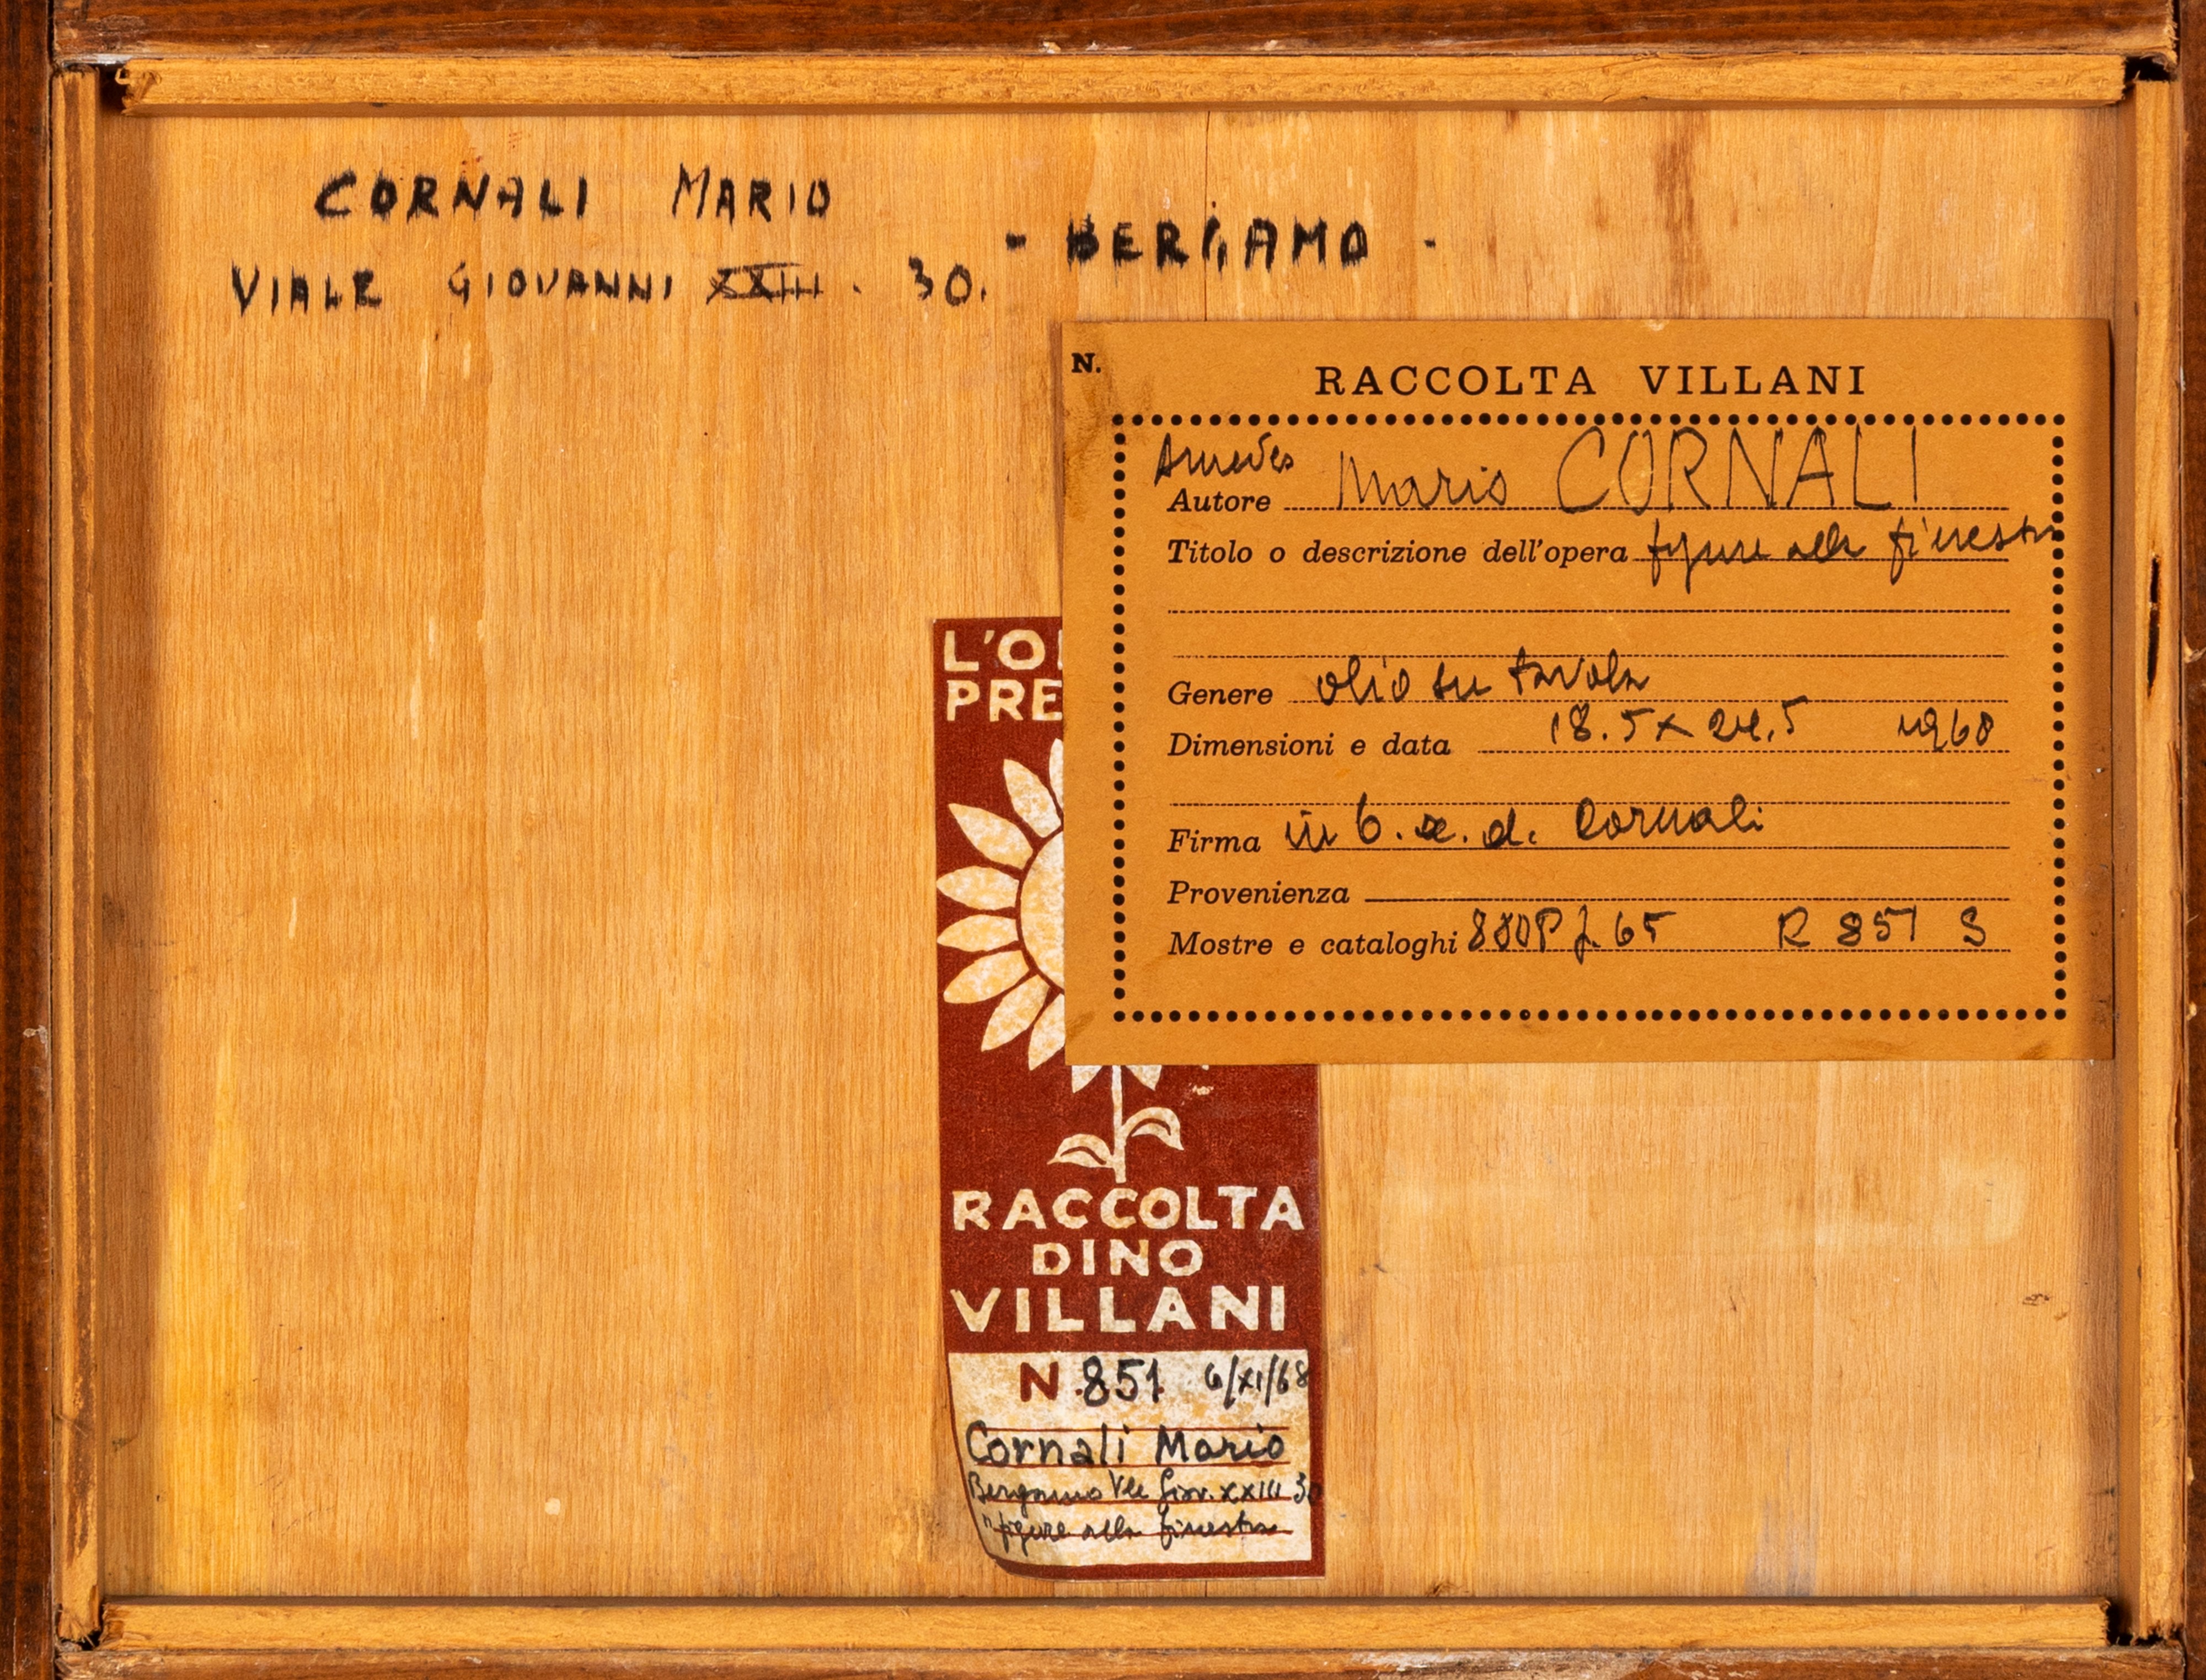 CORNALI MARIO
VIALE GIOVANNI XXIII. 30. - BERGAMO -
N.
RACCOLTA VILLANI
Amedeo
Autore Mario CORNALI
Titolo o descrizione dell'opera figure alla finestra
Genere olio su tavola
Dimensioni e data 18.5 x 24,5 1960
Firma in b. a. d. Cornali
Provenienza
Mostre e cataloghi 65 R 851 S
L'O
PRE
RACCOLTA
DINO
VILLANI
N 851 6/XI/68
Cornali Mario
Bergamo Vle Giov. XXIII 30
"figure alla finestra